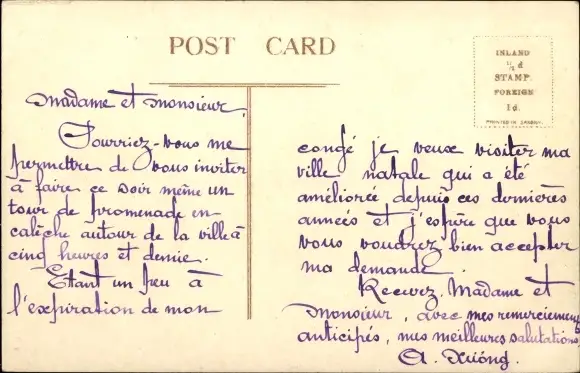 POST CARD
INLAND
½d
STAMP.
FOREIGN
1d.
PRINTED IN SAXONY.
Madame et Monsieur,
Pourriez-vous me
permettre de vous inviter
à faire ce soir même un
tour de promenade en
calèche autour de la ville à
cinq heures et demie.
Etant un peu à
l'expiration de mon
congé je veux visiter ma
ville natale qui a été
améliorée depuis ces dernières
années et j'espère que vous
vous voudrez bien accepter
ma demande.
Recevez, Madame et
Monsieur, avec mes remerciements
anticipés, mes meilleures salutations,
A.